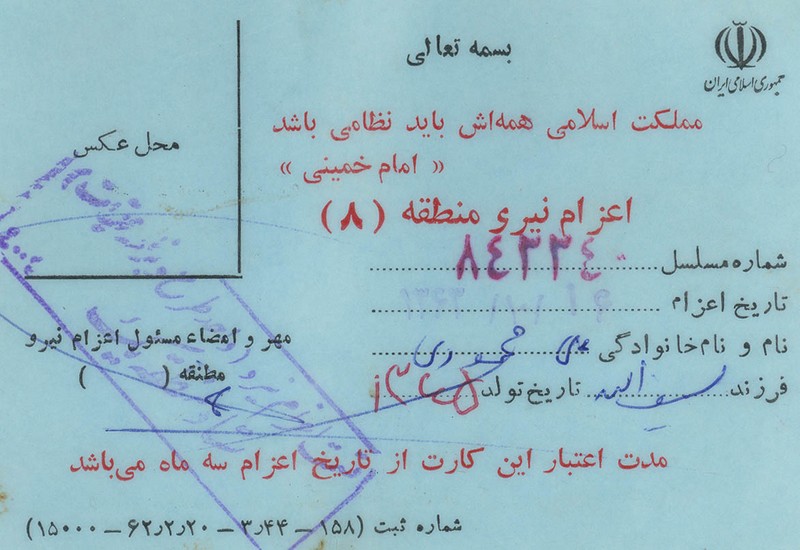 بسمه تعالی
جمهوری اسلامی ایران
مملکت اسلامی همه‌اش باید نظامی باشد
« امام خمینی »
محل عکس
اعزام نیرو منطقه (۸)
شماره مسلسل ۸۴۳۳۴۰
تاریخ اعزام ۱۶ /۱۰/ ۱۳۶۳
نام و نام‌خانوادگی
فرزند تاریخ تولد ۱۳۴۵
مهر و امضاء مسئول اعزام نیرو
مطنقه ( ) ۸
مدت اعتبار این کارت از تاریخ اعزام سه ماه می‌باشد
شماره ثبت (۱۵۸ – ۳٫۴۴ – ۶۲٫۲٫۲۰ – ۱۵۰۰۰)